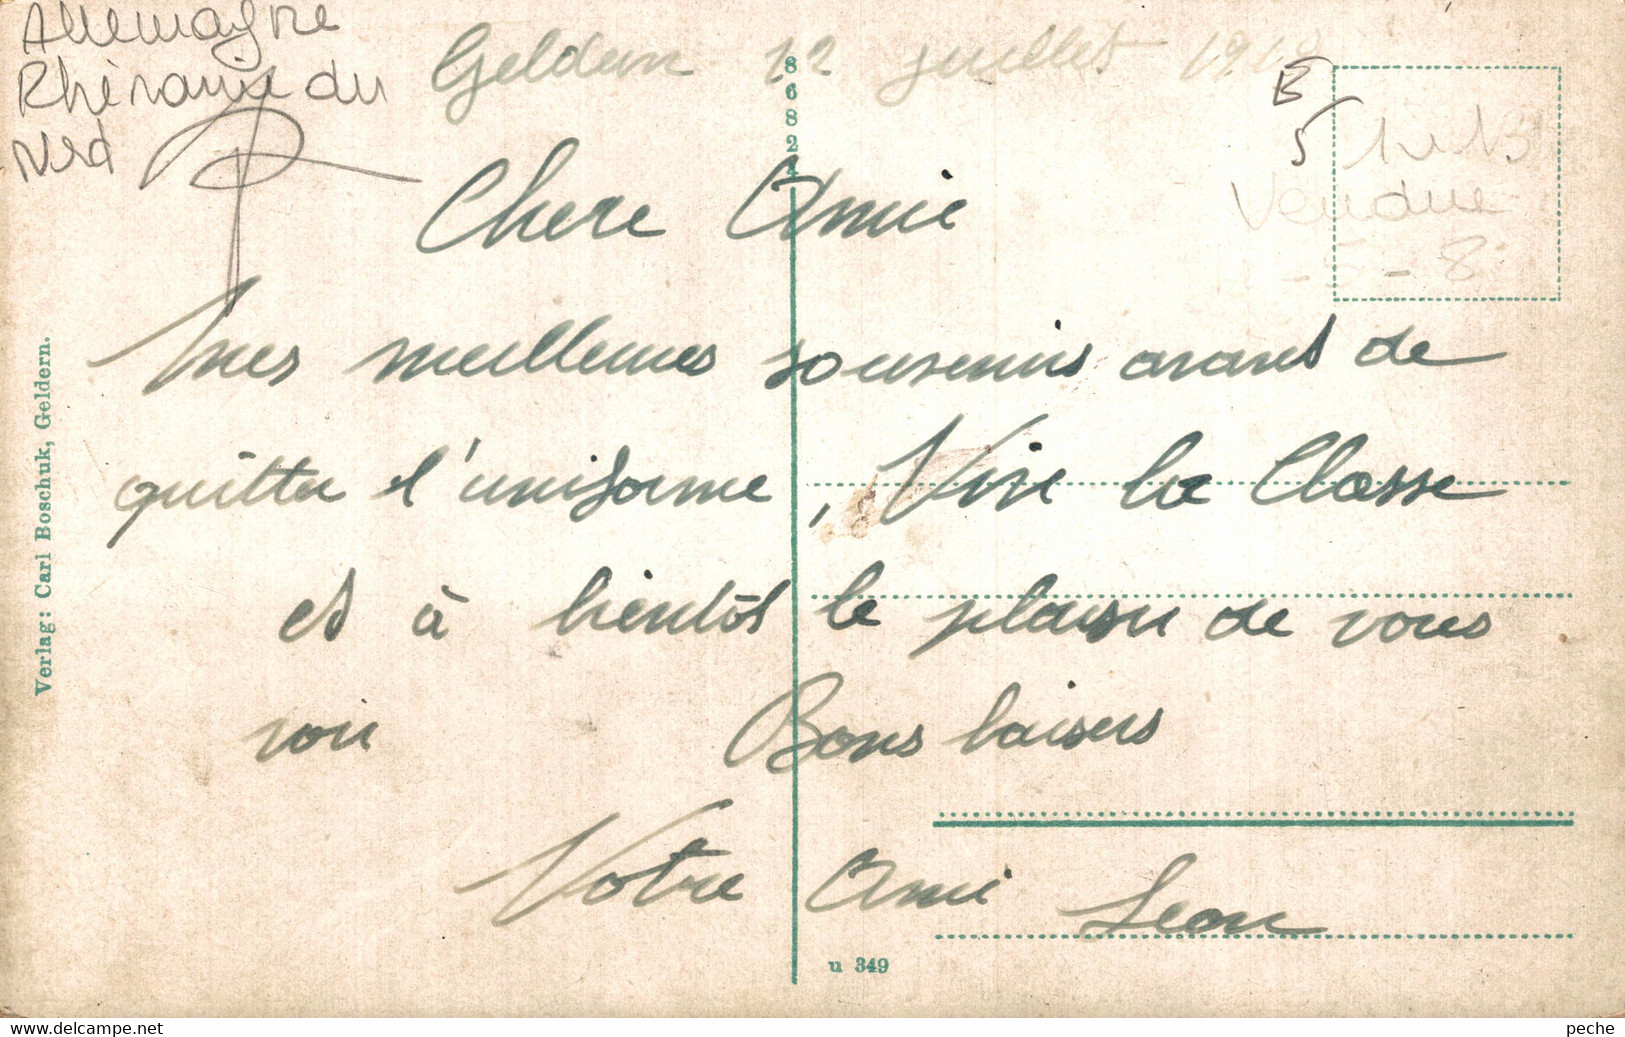 Allemagne
Rhénanie du
Nrd
Geldern 12 juillet
86821
B
5
Vendue
- 5 - 8
Chere Amie
Mes meilleures souvenirs avant de
quitter l'uniforme, Vive la Classe
et à bientôt le plaisir de vous
voir Bons baisers
Votre Ami Leon
Verlag: Carl Boschuk, Geldern.
u 349
www.delcampe.net
peche